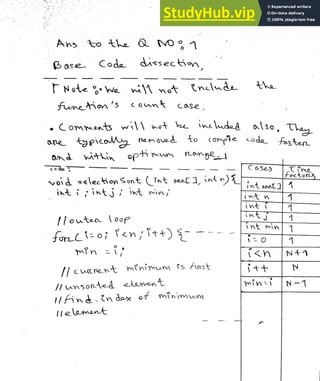 StudyHub.vip
Experienced writers
Online delivery
Plagiarism free
Ans to the Q NO: 1
Base Code dissection,
Note: We will not include the
function's count case.
• Comments will not be included also. They
are typically removed to compile code faster
and within optimum range
code:
void selectionSort (int arr[], int n){
int i; int j; int min;
//outer loop
for(i=0; i<n; i++) {
min = i;
// current minimum is first
// unsorted element
// find index of minimum
//element
Cases
int arr[] 1
int n 1
int i 1
int j 1
int min 1
i=0 1
i<n N+1
i++ N
min=i N-1